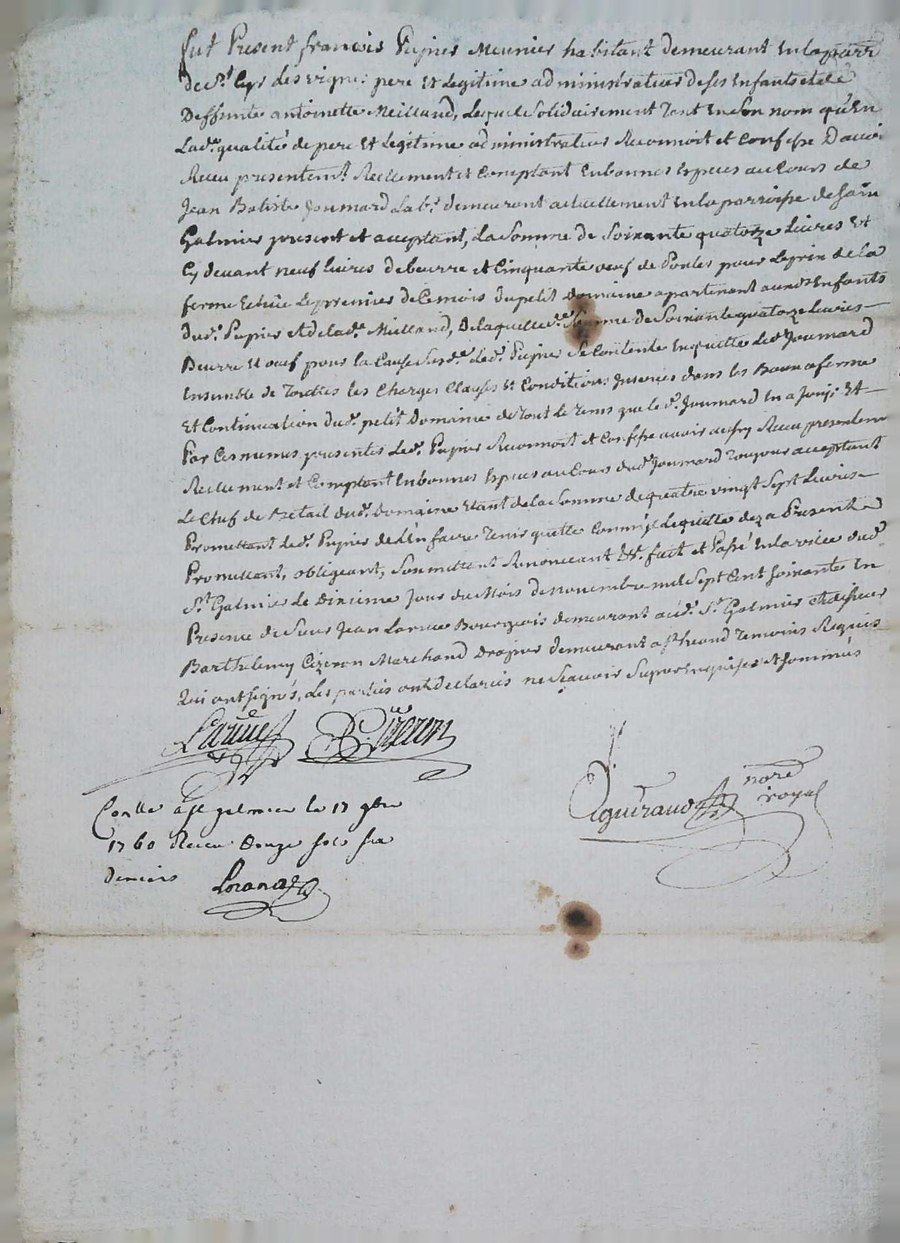 fut Present francois Pupier Meunier habitant demeurant en la parr
de St Cyr les vignes pere et Legitime administrateur de ses Enfants et de
Deffunte antoinette Meilland, Lequel solidairement tant en son nom qu'En
Lade. qualité de pere Et Legitime administrateur Reconnoit et Confesse D'avoir
Receu presentemt. Reellement et Comptant En bonnes Especes au Cours de
Jean Batiste Joumard Labr. demeurant actuellement En la parroisse de Sain
Galmier present et acceptant, La Somme de Soixante quatorze Livres Et
Cy devant neuf livres de beurre et Cinquante oeuf de Poules pour Le prix de la
ferme Echue Le premier de Ce mois du petit Domaine apartenant auxds Enfants
dud. Pupier et de lade. Meilland, De laquelle de. Somme de Soixante quatorze Livres
Beurre Et oeuf pour la Cause Susde. Led. Pupier Se Contente En quitte Led. Joumard
Ensemble de Touttes les Charges Clauses Et Conditions Inserées dans les Beaux a ferme
Et Continuation dud. petit Domaine de tout le tems que led. Joumard En a Joui; Et
Par Ces memes presentes Led. Pupier Reconnoit et Confesse avoir aussy Receu presentem
Reellement et Comptant En bonnes Especes au Cours dud. Joumard Toujour acceptant
Le Chef de Betail dud. Domaine Etant de la Somme de quatre vingt Sept Livres
Promettant Led. Pupier de L'en faire Tenir quitte Comme Il Le quitte dez a Present
Promettant, obligeant, Soumettant Renoncant &c. fait et Passé En la ville dud.
St. Galmier Le Dixieme Jour du Mois de novembre mil Sept Cent Soixante En
Presence de Sieur Jean Larue Bourgeois demeurant aud. St. Galmier et de Sieur
Barthelemy Cizeron Marchand Drapier demeurant a St heand Temoins Requis
Qui ont signés, Les parties ont declarées ne Scavoir Signer Enquises et Sommées
Larue
B. Cizeron
Eguiraud nore royal
Conllé a St galmier le 17 9bre
1760 Receu Douze sols six
deniers